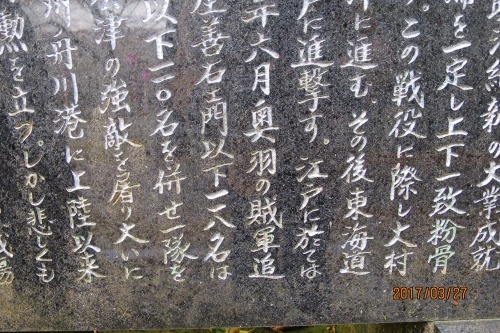 維新の大業成就
を一定し上下一致粉骨
この戦役に際し大村
に進む。その後東海道
戸に進撃す。江戸に於ては
年六月奥羽の賊軍追
善右ヱ門以下一八名は
以下二〇名を併せ一隊を
津の強敵を屠り大いに
舟川港に上陸以来
勲を立つ。しかし悲しくも
2017/03/27